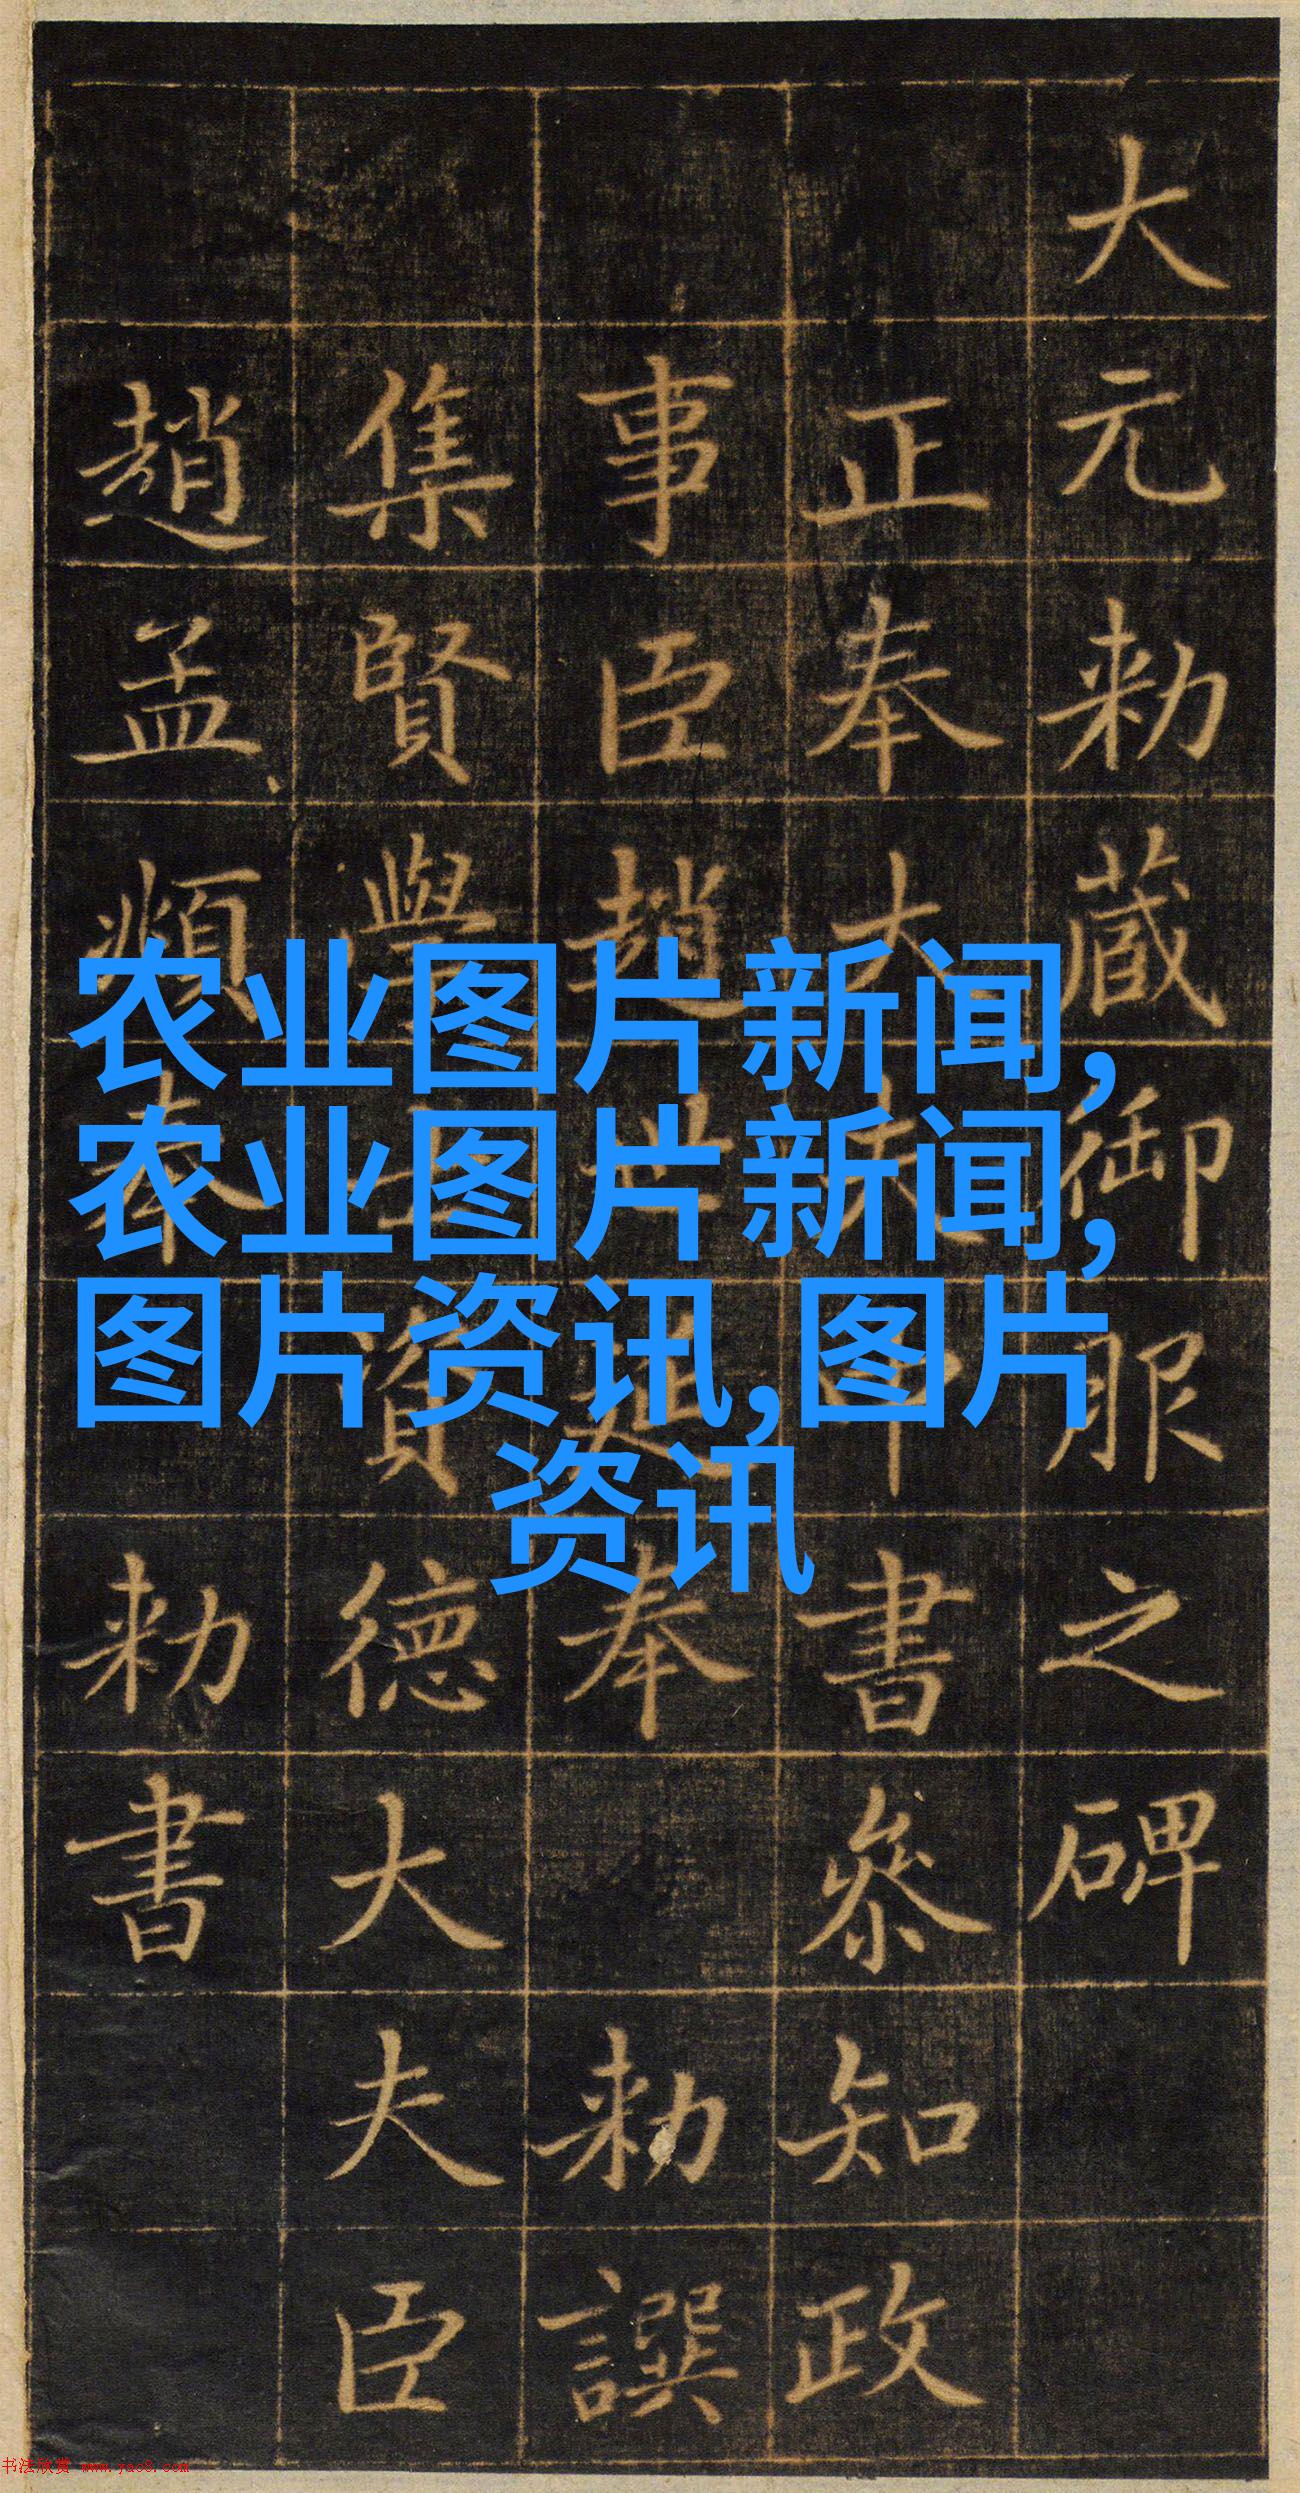 大元勅藏御服之碑
正奉大夫中書參知政
事臣趙世延奉勅譔
集賢學士資德大夫臣
趙孟頫奉勅書
农业图片新闻,
农业图片新闻,
图片资讯,图片
资讯
书法欣赏 www.yac8.com